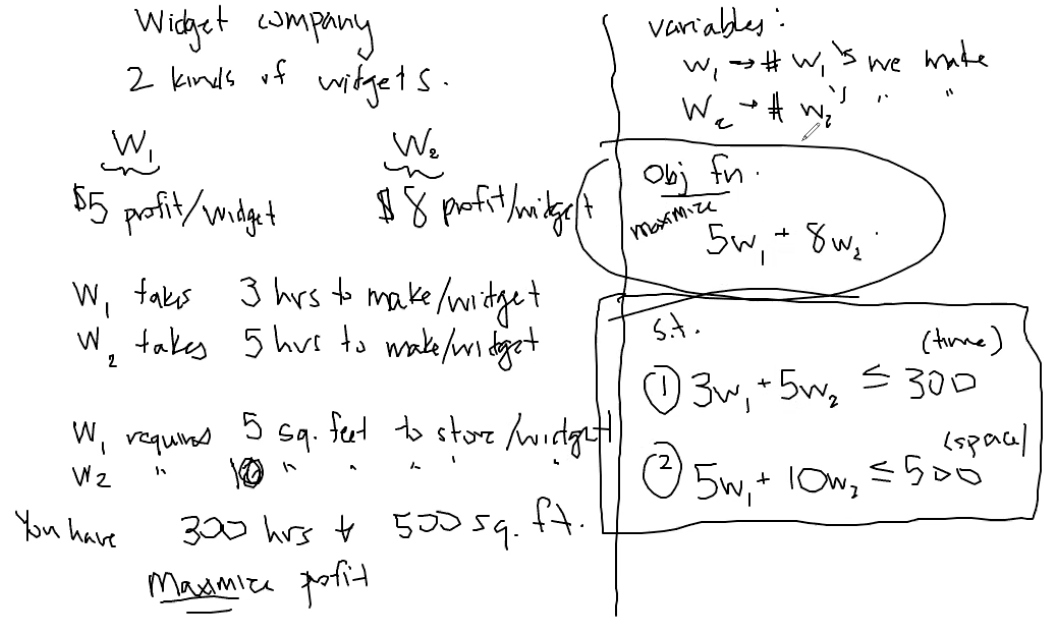 Widget company
2 kinds of widgets.
W₁ W₂
$5 profit/widget $8 profit/widget
W₁ takes 3 hrs to make/widget
W₂ takes 5 hrs to make/widget
W₁ requires 5 sq. feet to store/widget
W2 " 10 " " " "
You have 300 hrs + 500 sq. ft.
Maximize profit
variables:
w₁ → # w₁'s we make
W₂ → # w₂'s " "
Obj fn.
maximize
5w₁ + 8w₂.
s.t.
(time)
① 3w₁ + 5w₂ ≤ 300
(space)
② 5w₁ + 10w₂ ≤ 500